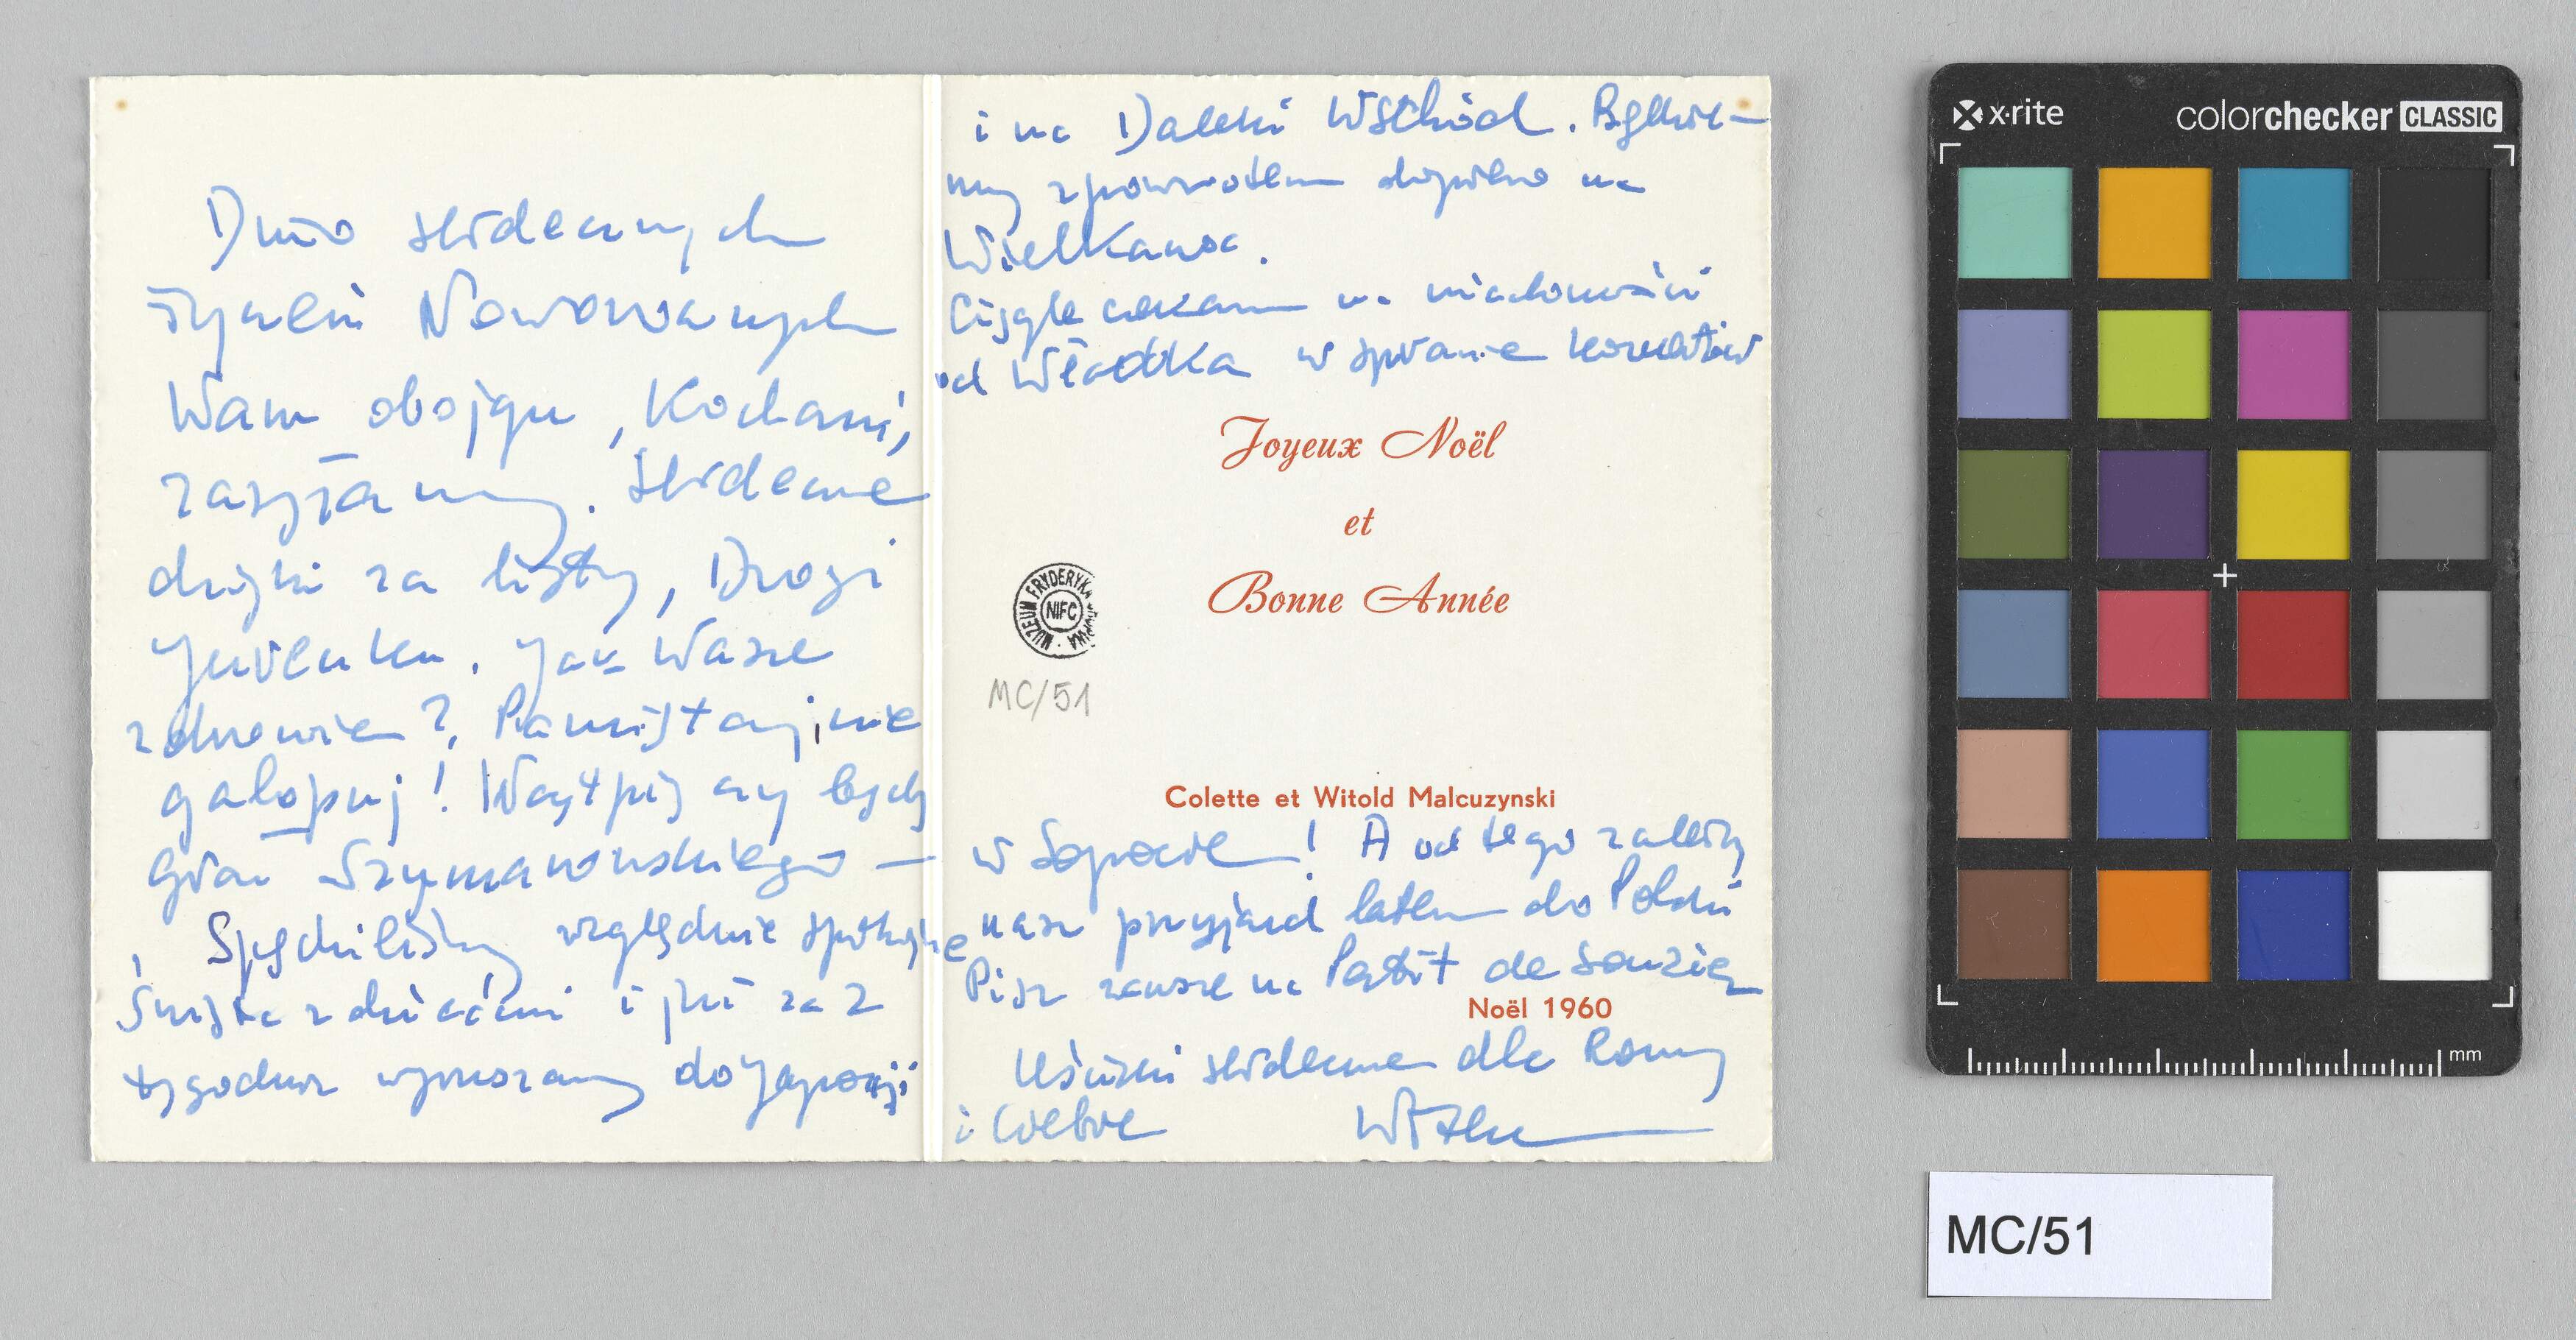 Dużo serdecznych
życzeń Noworocznych
Wam obojgu, Kochani,
zasyłamy. Serdeczne
dzięki za listy, Drogi
Jureńku. Jak Wasze
zdrowie? Pamiętaj, nie
galopuj! Wątpię czy będę
grał Szymanowskiego —
Spędziliśmy względnie spokojnie
Święta z dziećmi i już za 2
tygodnie wyruszamy do Japonji
i na Daleki Wschód. Będzie-
my zpowrotem dopiero na
Wielkanoc.
Ciągle czekam na wiadomości
od Władka w sprawie koncertów
Joyeux Noël
et
Bonne Année
MUZEUM FRYDERYKA CHOPINA
NIFC
MC/51
Colette et Witold Malcuzynski
w Sopocie! A od tego zależy
nasz przyjazd latem do Polski
Pisz zawsze na Petit de
Noël 1960
Uściski serdeczne dla Romy
i Ciebie Witek
x·rite
colorchecker CLASSIC
mm
MC/51